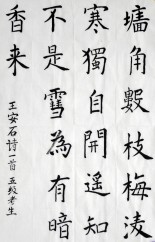 墻角數枝梅淩
寒獨自開遥知
不是雪為有暗
香来
王安石詩一首 五级考生